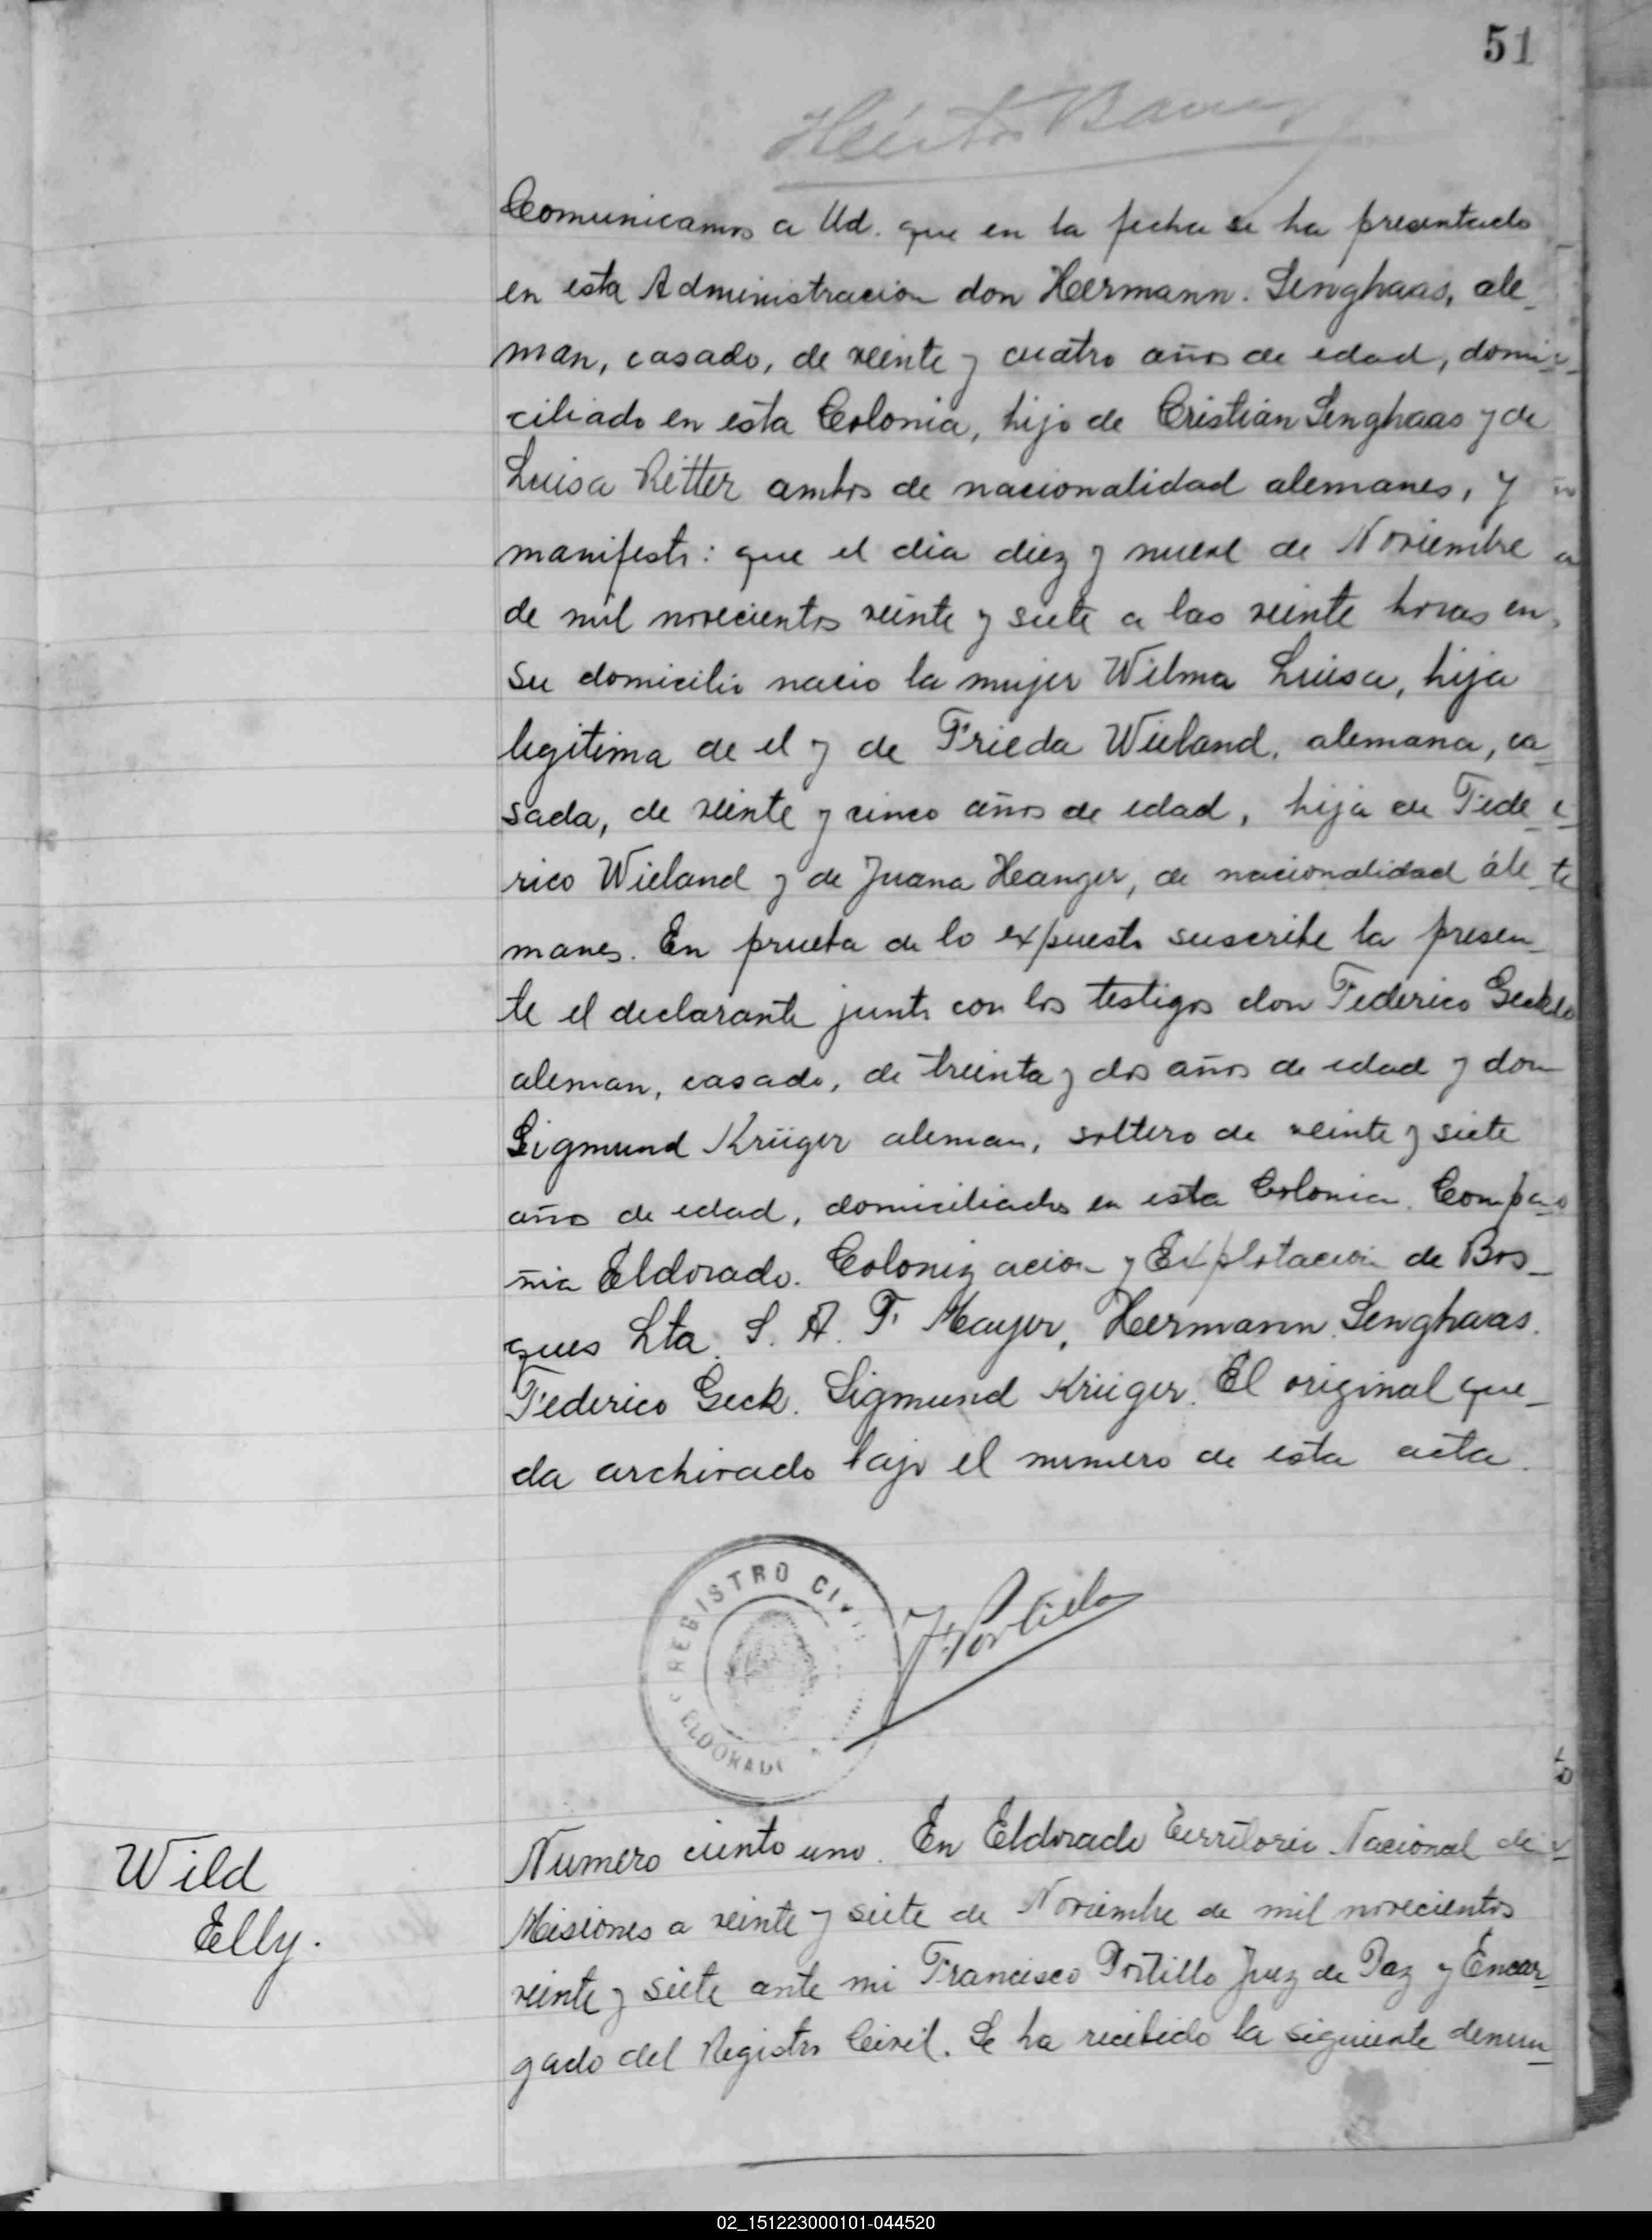 51
Comunicamos a Ud. que en la fecha se ha presentado
en esta Administracion don Hermann. Senghaas, ale_
man, casado, de veinte y cuatro años de edad, domi_
ciliado en esta Colonia, hijo de Cristian Senghaas y de
Luisa Ritter ambos de nacionalidad alemanes, y
manifesto: que el dia diez y nueve de Noviembre
de mil novecientos veinte y siete a las veinte horas en
su domicilio nacio la mujer Wilma Luisa, hija
legitima de el y de Frieda Wieland, alemana, ca_
sada, de veinte y cinco años de edad, hija de Fede_
rico Wieland y de Juana Heanger, de nacionalidad ale_
manes. En prueba de lo expuesto suscribe la presen_
te el declarante junto con los testigos don Federico Geck
aleman, casado, de treinta y dos años de edad y don
Sigmund Krüger aleman, soltero de veinte y siete
años de edad, domiciliados en esta Colonia. Compa_
ñia Eldorado. Colonizacion y Explotacion de Bos_
ques Lta. S. A. F. Mayer, Hermann Senghaas.
Federico Geck. Sigmund Krüger. El original que_
da archivado bajo el numero de esta acta.
REGISTRO CIVIL
ELDORADO
F. Portillo
Wild
Elly.
Numero ciento uno. En Eldorado Territorio Nacional de
Misiones a veinte y siete de Noviembre de mil novecientos
veinte y siete ante mi Francisco Portillo Juez de Paz y Encar_
gado del Registro Civil. Se ha recibido la siguiente denun_
02_151223000101-044520